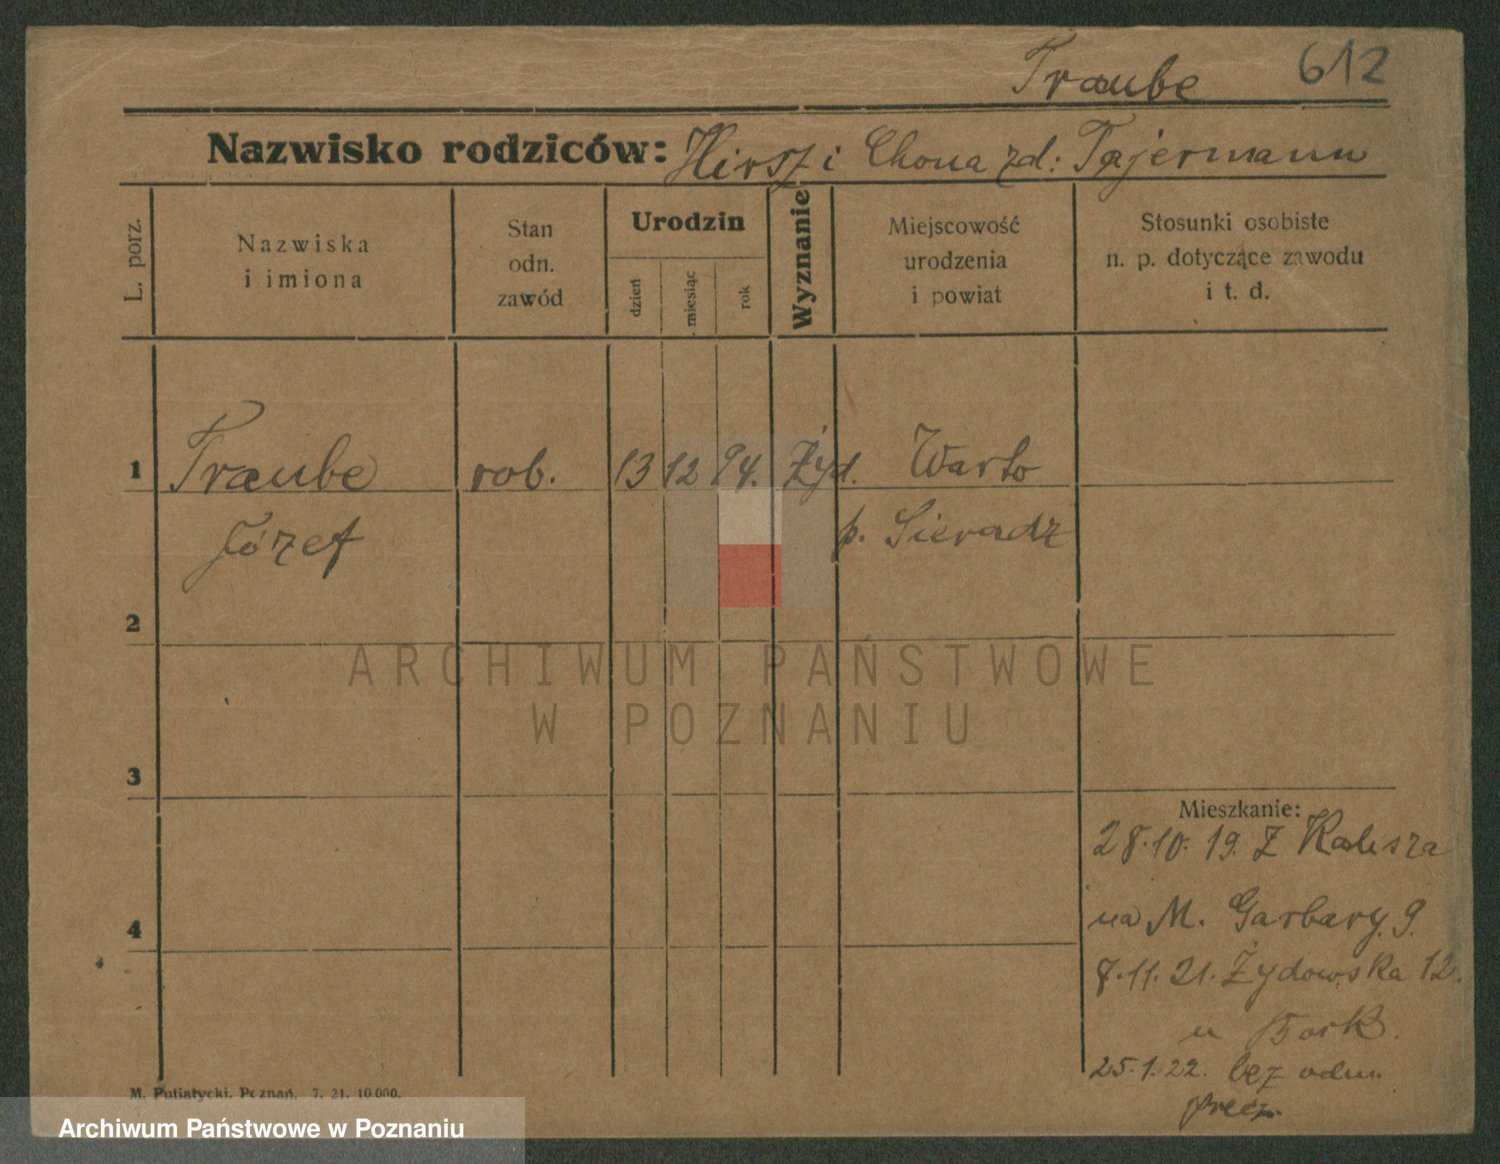 Traube 612
Nazwisko rodziców: Hirsz i Chona zd: Tajermann
L. porz.
Nazwiska
i imiona
Stan
odn.
zawód
Urodzin
dzień
miesiąc
rok
Wyznanie
Miejscowość
urodzenia
i powiat
Stosunki osobiste
n. p. dotyczące zawodu
i t. d.
1 Traube rob. 13 12 94. Żyd. Warto
Józef p. Sieradz
2
3
4
Mieszkanie:
28.10.19. Z Kalisza
na M. Garbary. 9.
7.11.21. Żydowska 12.
u
25.1.22. bez odm.
M. Putiatycki, Poznań, 7. 21. 10 000.
ARCHIWUM PAŃSTWOWE
W POZNANIU
Archiwum Państwowe w Poznaniu